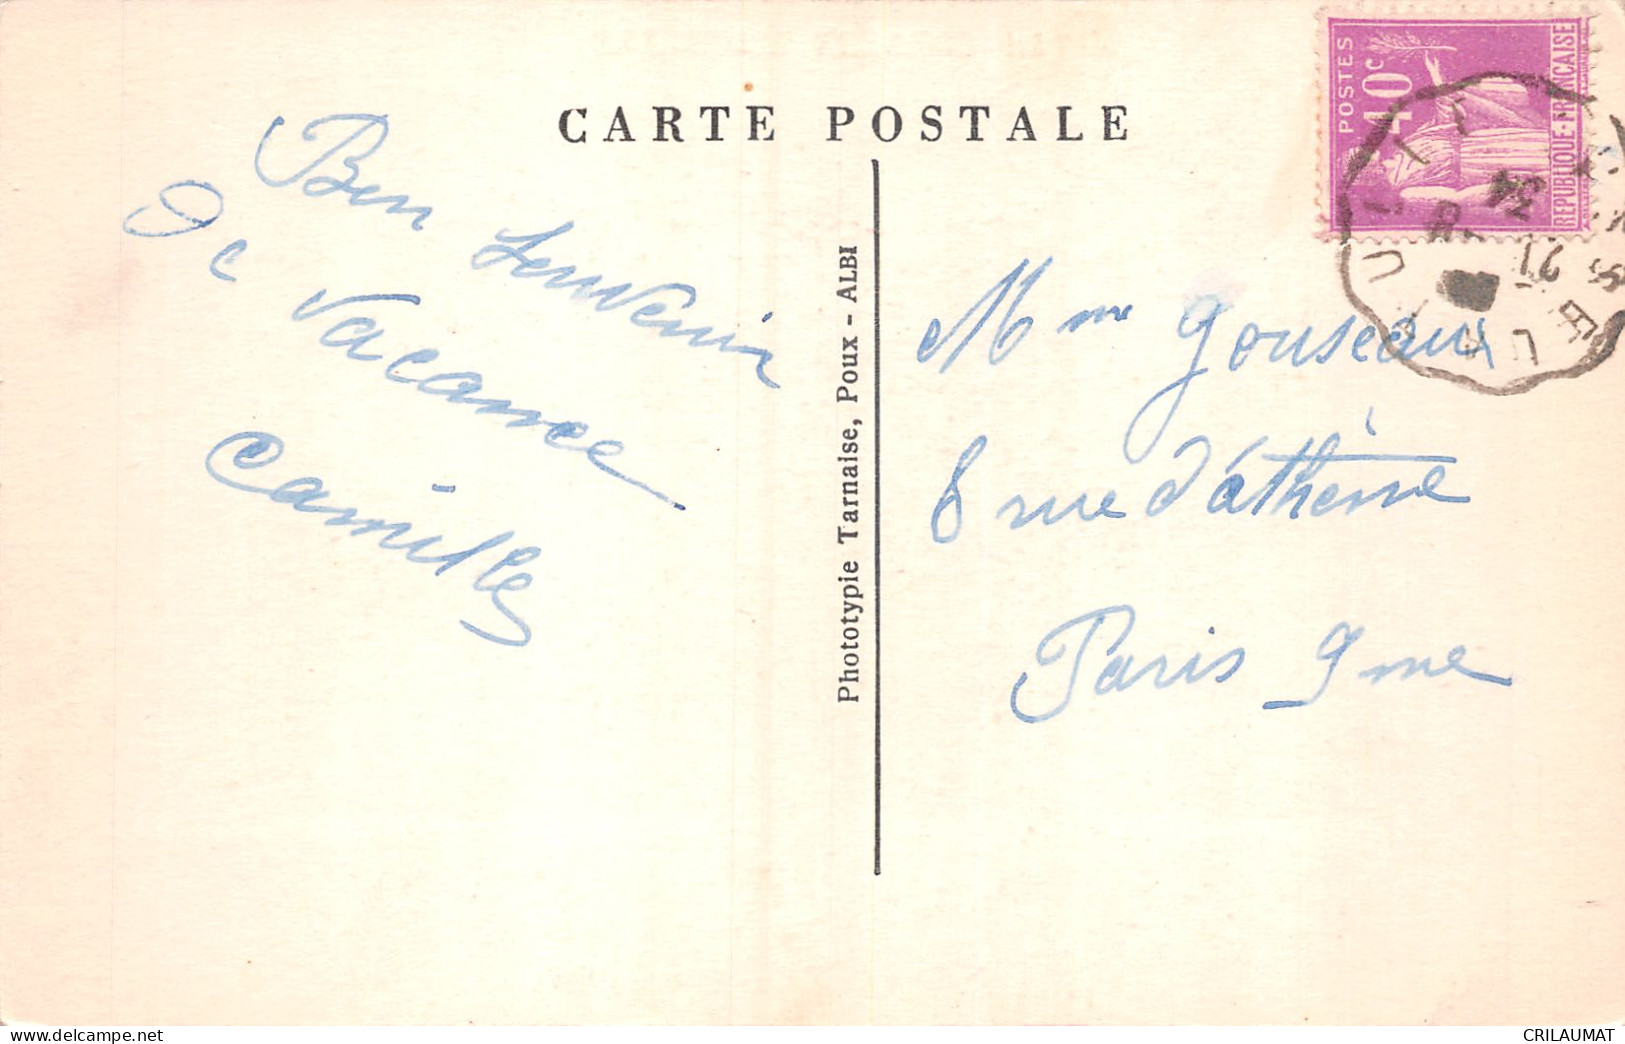 CARTE POSTALE
Bon Souvenir
De Vacance
Camille
Phototypie Tarnaise, Poux - ALBI
POSTES
40c
REPUBLIQUE·FRANCAISE
21
34
Mme Gouseaux
8 rue d'athène
Paris 9me
www.delcampe.net
CRILAUMAT